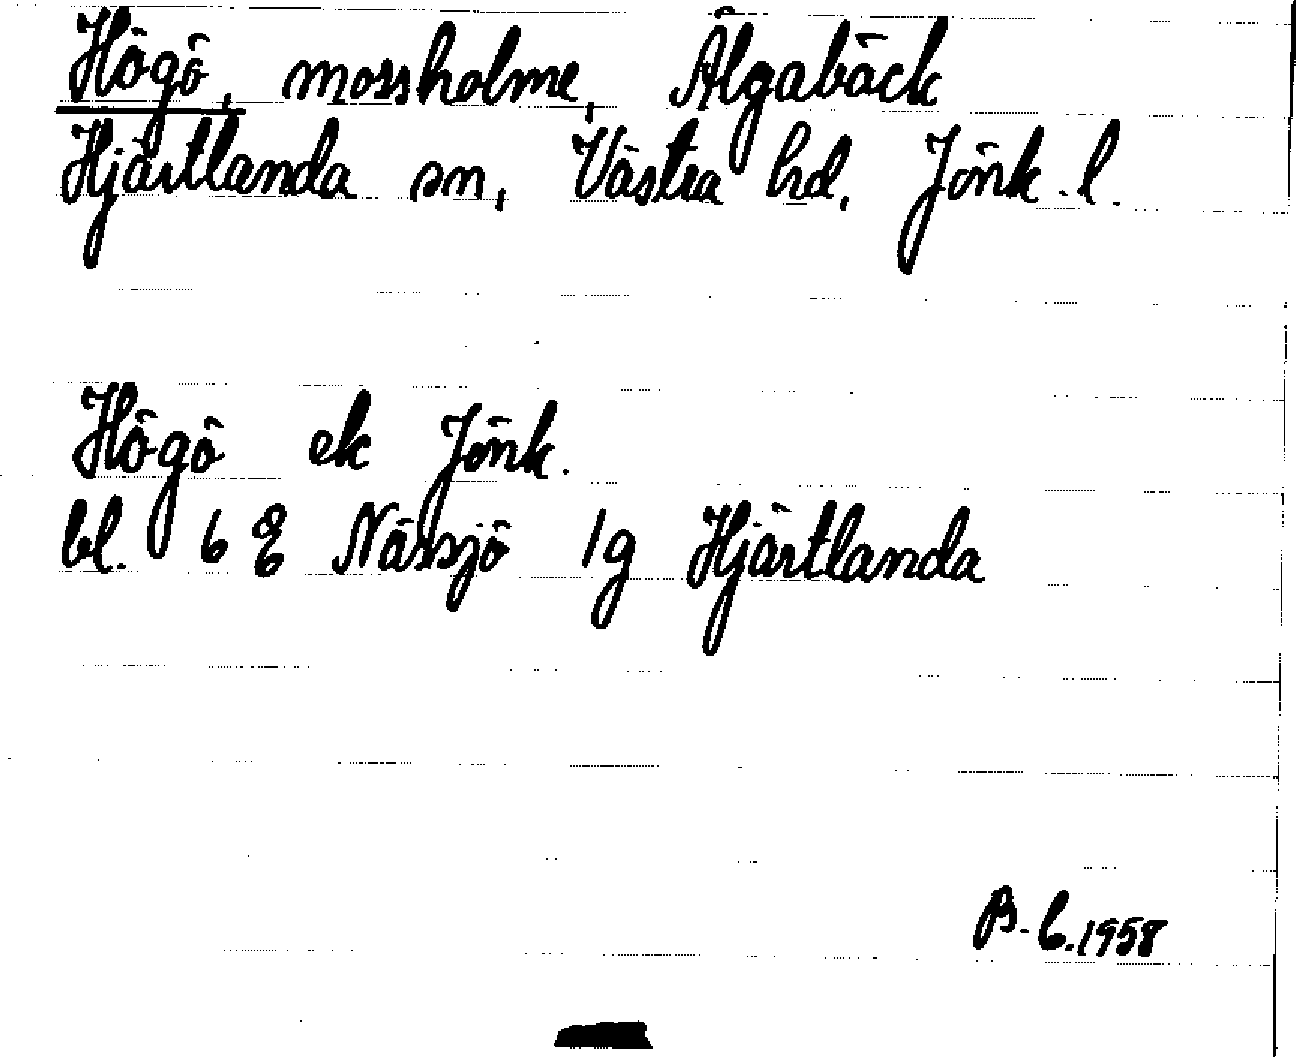 Högö, mossholme, Älgabäck
Hjärtlanda sn, Västra hd, Jönk. l.
Högö ek Jönk.
bl. 6 E Nässjö 1g Hjärtlanda
B. C. 1958